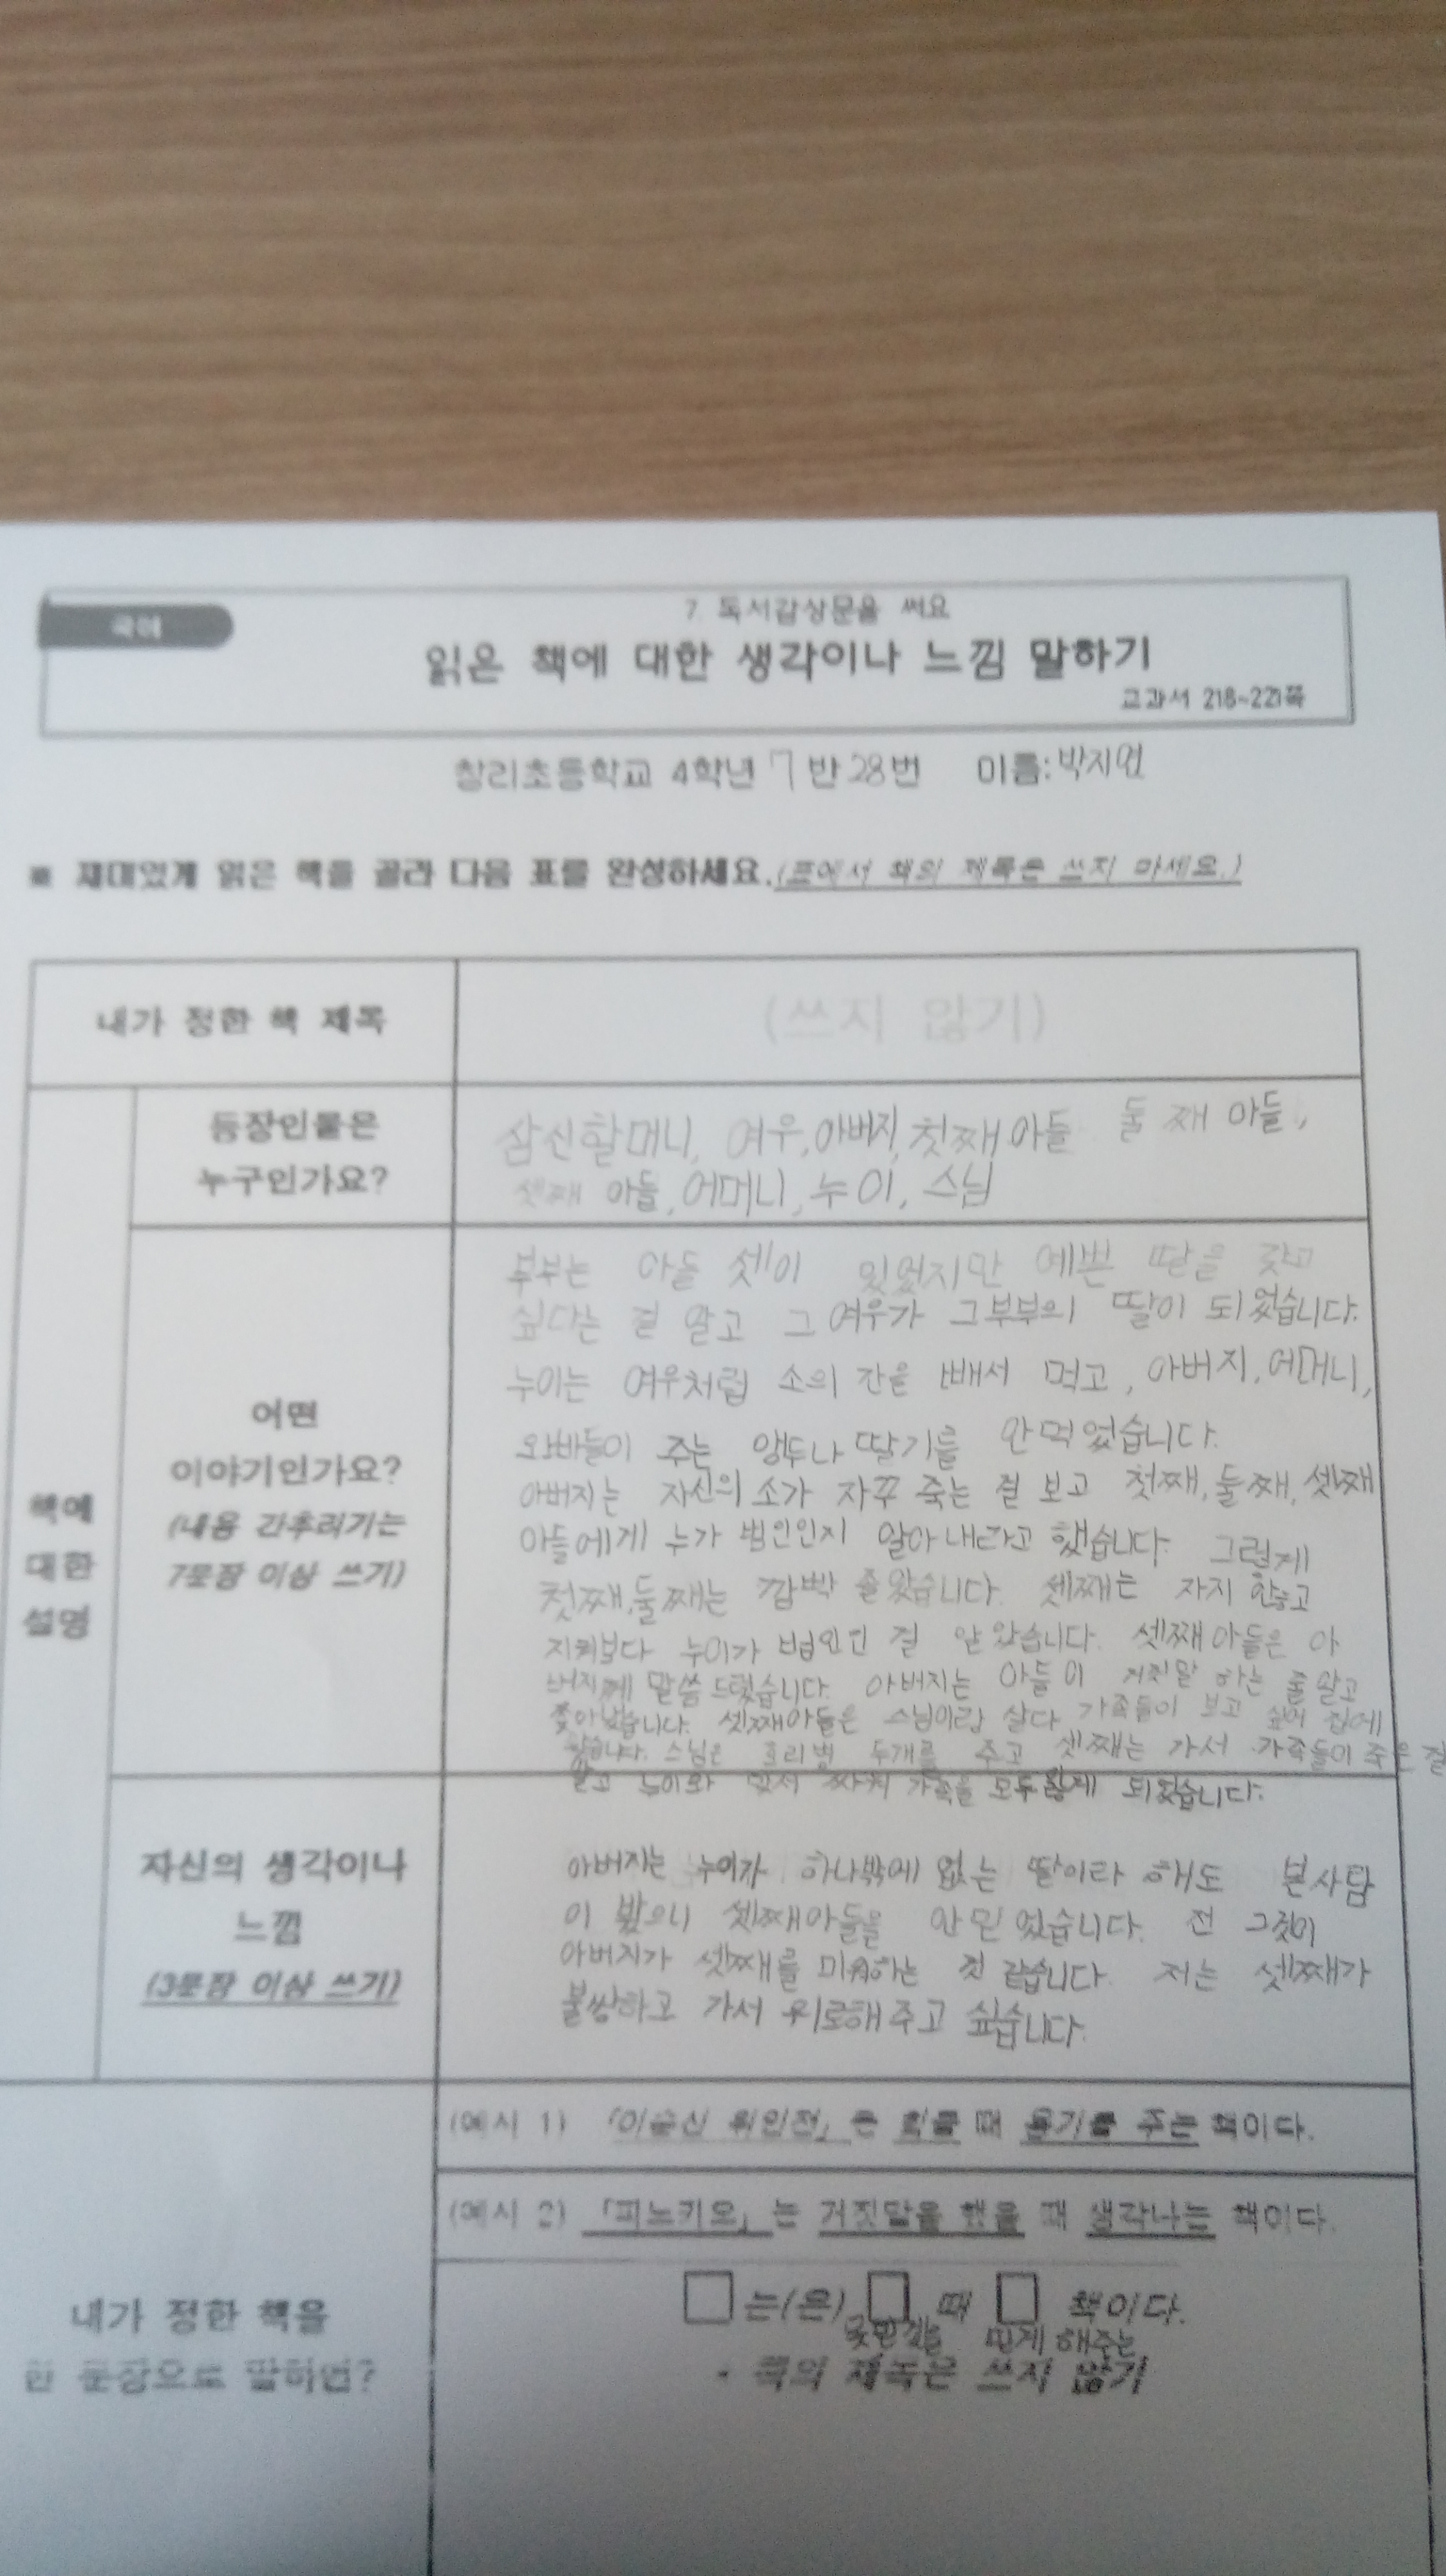 국어
7. 독서감상문을 써요
읽은 책에 대한 생각이나 느낌 말하기
교과서 218~221쪽
창리초등학교 4학년 7반 28번 이름: 박지연
※ 재미있게 읽은 책을 골라 다음 표를 완성하세요.(표에서 책의 제목은 쓰지 마세요.)
내가 정한 책 제목
(쓰지 않기)
책에
대한
설명
등장인물은
누구인가요?
삼신할머니, 여우, 아버지, 첫째 아들 둘째 아들,
셋째 아들, 어머니, 누이, 스님
어떤
이야기인가요?
(내용 간추리기는
7문장 이상 쓰기)
부부는 아들 셋이 있었지만 예쁜 딸을 갖고
싶다는 걸 알고 그 여우가 그 부부의 딸이 되었습니다.
누이는 여우처럼 소의 간을 빼서 먹고, 아버지, 어머니,
오빠들이 주는 앵두나 딸기를 안 먹었습니다.
아버지는 자신의 소가 자꾸 죽는 걸 보고 첫째, 둘째, 셋째
아들에게 누가 범인인지 알아내라고 했습니다. 그렇게
첫째, 둘째는 깜빡 졸았습니다. 셋째는 자지 않고
지켜보다 누이가 범인인 걸 알았습니다. 셋째 아들은 아
버지께 말씀드렸습니다. 아버지는 아들이 거짓말 하는 줄 알고
쫓아냈습니다. 셋째아들은 스님이랑 살다 가족들이 보고 싶어 집에
갔습니다. 스님은 호리병 두개를 주고 셋째는 가서 가족들이 죽은 걸
알고 누이와 맞서 가족을 모두 되었습니다.
자신의 생각이나
느낌
(3문장 이상 쓰기)
아버지는 누이가 하나밖에 없는 딸이라 해도 본 사람
이 봤으니 셋째아들을 안 믿었습니다. 전 그것이
아버지가 셋째를 미워하는 것 같습니다. 저는 셋째가
불쌍하고 가서 위로해 주고 싶습니다.
내가 정한 책을
한 문장으로 말하면?
(예시 1) 「이순신 위인전」은 힘들 때 용기를 주는 책이다.
(예시 2) 「피노키오」는 거짓말을 했을 때 생각나는 책이다.
□는(은) □ 때 □ 책이다.
못믿 믿게 해주는
* 책의 제목은 쓰지 않기